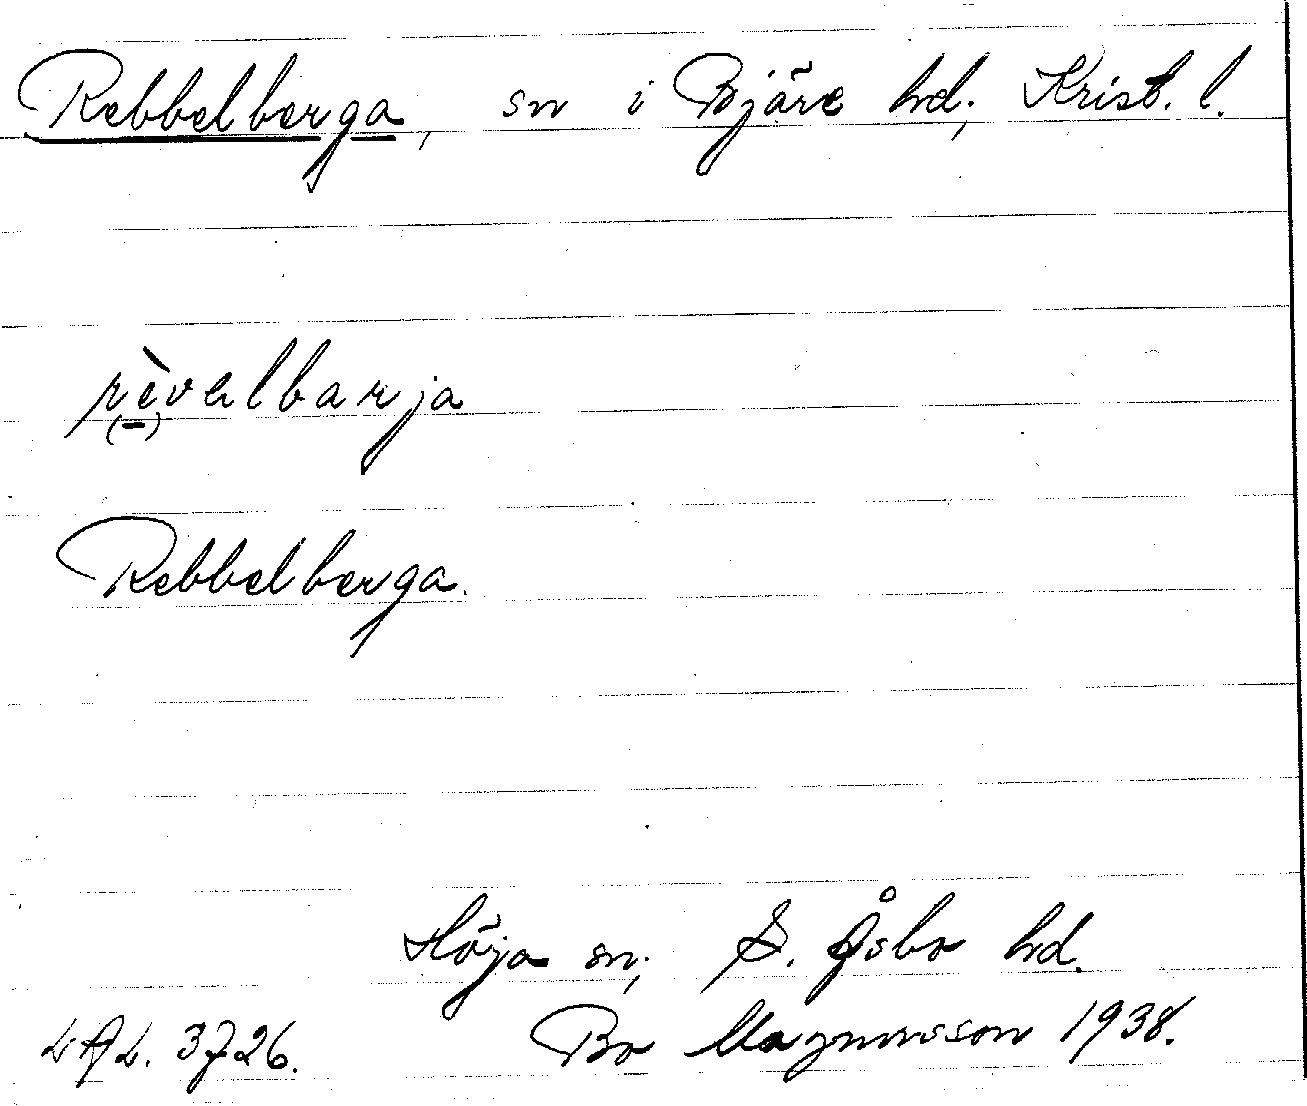 Rebbelberga, sn i Bjäre hd, Krist. l.
rèvəlbarja
(–)
Rebbelberga.
Höja sn, S. Åsbo hd.
LAL. 3726. Bo Magnusson 1938.